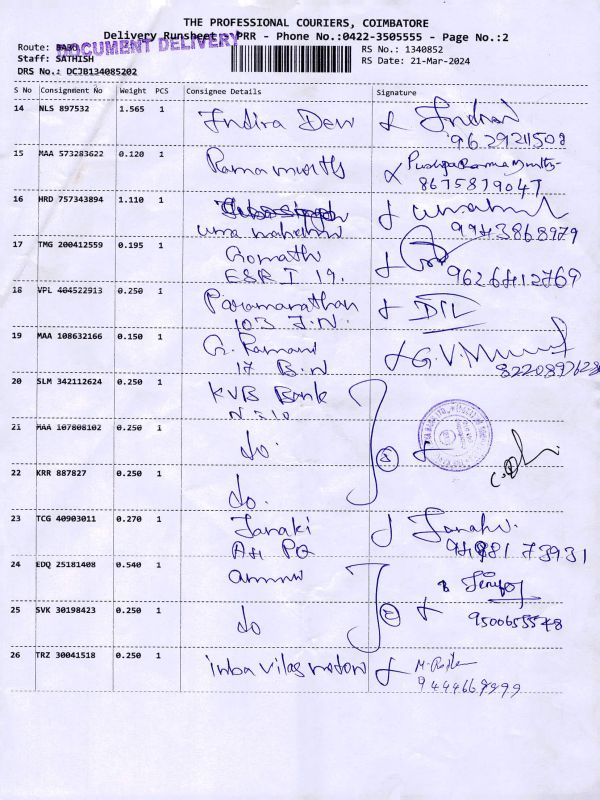 THE PROFESSIONAL COURIERS, COIMBATORE
Delivery Runsheet PRR - Phone No.:0422-3505555 - Page No.:2
DOCUMENT DELIVERY
Route: BA30
RS No.: 1340852
Staff: SATHISH
RS Date: 21-Mar-2024
DRS No.: DCJB134085202
S No Consignment No Weight PCS Consignee Details Signature
14 NLS 897532 1.565 1 Indira Devi
9629211508
15 MAA 573283622 0.120 1 Ramamurth
8675879047
16 HRD 757343894 1.110 1
uma
9943868979
17 TMG 200412559 0.195 1 Gomath
ESRI 19.
9626412769
18 VPL 404522913 0.250 1 Paramanathan
103 J.N.
19 MAA 108632166 0.150 1 G. Ramani G.V.
17 B.N
20 SLM 342112624 0.250 1 KVB Bank
N 310
21 MAA 107808102 0.250 1 do.
22 KRR 887827 0.250 1 do.
23 TCG 40903011 0.270 1 Janaki Janaki.
73931
24 EDQ 25181408 0.540 1 ammu
25 SVK 30198423 0.250 1 do
26 TRZ 30041518 0.250 1 inba vilas motors